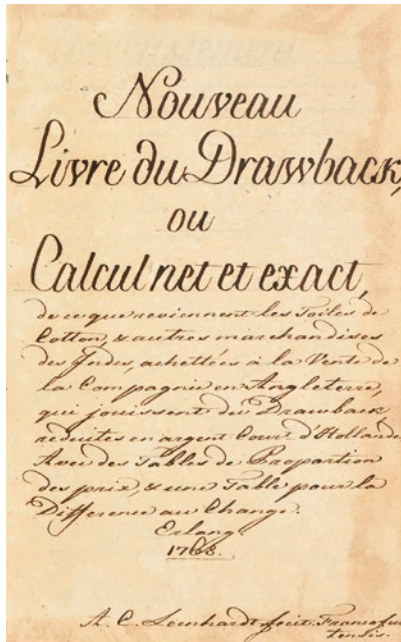 Nouveau
Livre du Drawback,
ou
Calcul net et exact,
de ce que reviennent les Toiles de
Cotton, & autres marchandises
des Indes, achettées à la Vente de
la Compagnie en Angleterre,
qui jouissent du Drawback,
reduites en argent Court d'Hollande
Avec des Tables de Proportion
des prix, & une Table pour la
Difference au Change.
Erlang.
1768.
A. C. Leinhardt fecit. Francofur
tensis.